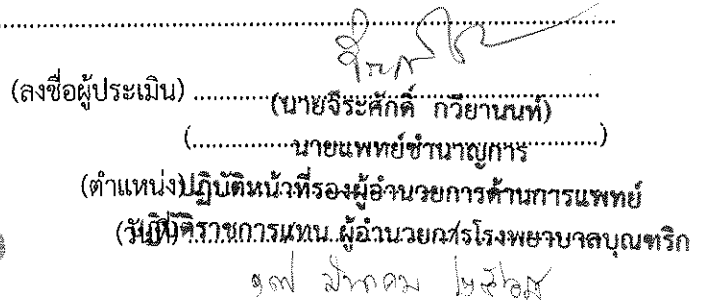 (ลงชื่อผู้ประเมิน)
(นายจีระศักดิ์ กวียานนท์)
(นายแพทย์ชำนาญการ)
(ตำแหน่ง)ปฏิบัติหน้าที่รองผู้อำนวยการด้านการแพทย์
(วันที่)ปฏิบัติราชการแทน ผู้อำนวยการโรงพยาบาลบุณฑริก
๑๗ มีนาคม